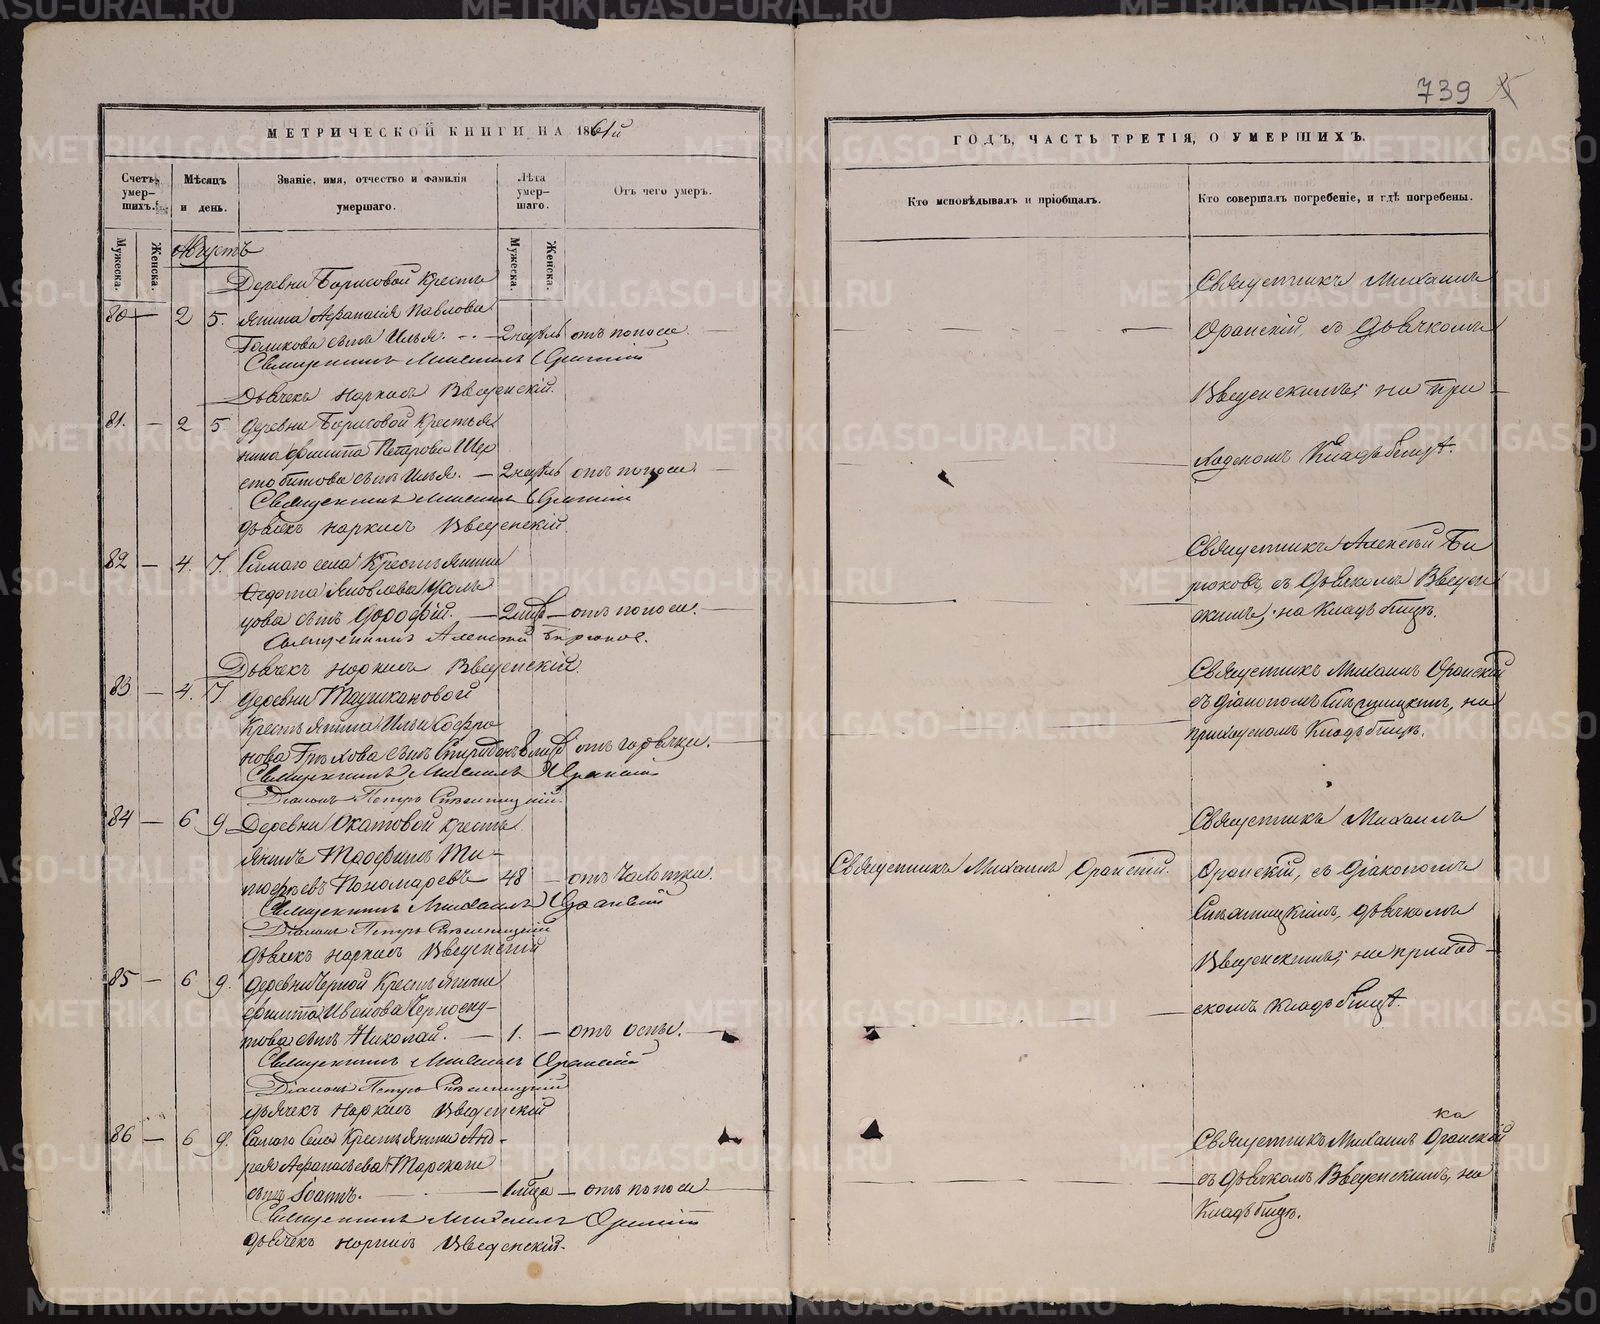 739
МЕТРИЧЕСКОЙ КНИГИ НА 1861й
Счетъ умер- шихъ.
Мѣсяцъ и день.
Званіе, имя, отчество и фамилія умершаго.
Лѣта умер- шаго.
Отъ чего умеръ.
Мужеска.
Женска.
Мужеска.
Женска.
Августъ
Деревни Борисовой Кресть
80 — 2 5. янина Афанасія Павлова
Голикова сынъ Илья. — 2 недѣль отъ поноса
Священникъ Михаилъ Оранскій
Дьячекъ Наркисъ Введенскій.
81. — 2 5. Деревни Борисовой Крестья
нина Филиппа Петрова Шер
стобитова сынъ Илья. — 2 недѣль отъ поноса
Священникъ Михаилъ Оранскій
Дьячекъ Наркисъ Введенскій.
82 — 4. 7. Самаго села Крестьянина
Федота Яковлева
цова сынъ Дорофѣй. — 2 мѣс — отъ поноса.
Священникъ Алексѣй Бирюковъ.
Дьячекъ Наркисъ Введенскій.
83 — 4. 7. Деревни Таушкановой
Крестьянина Ильи Софро
нова Грѣхова сынъ Спиридонъ отъ горячки.
Священникъ Михаилъ Оранскій
Діаконъ Петръ
84 — 6 9. Деревни Окатовой кресть
янинъ Трофимъ Ти-
мофѣевъ Пономаревъ 48 — отъ чахотки.
Священникъ Михаилъ Оранскій
Діаконъ Петръ
Дьячекъ Наркисъ Введенскій
85 — 6 9. Деревни Черной Крестьянина
Филиппа Иванова Черноску-
това сынъ Николай. — 1. — отъ оспы.
Священникъ Михаилъ Оранскій
Діаконъ Петръ
дьячекъ Наркисъ Введенскій
86 — 6 9. Самаго села Крестьянина Анд-
рея Афанасьева Тарскаго
сынъ Іоаннъ. — 1 мѣсяца — отъ поноса
Священникъ Михаилъ Оранскій
Дьячекъ Наркисъ Введенскій.
ГОДЪ, ЧАСТЬ ТРЕТІЯ, О УМЕРШИХЪ.
Кто исповѣдывалъ и пріобщалъ.
Кто совершалъ погребеніе, и гдѣ погребены.
Священникъ Михаилъ
Оранскій, съ дьячкомъ
Введенскимъ; на при-
ходскомъ Кладбищѣ.
Священникъ Алексѣй Би
рюковъ, съ дьячкомъ Введен
скимъ; на Кладбищѣ.
Священникъ Михаилъ Оранскій
съ діакономъ, на
приходскомъ Кладбищѣ.
Священникъ Михаилъ Оранскій.
Священникъ Михаилъ
Оранскій, съ Діакономъ
дьячкомъ
Введенскимъ; на приход-
скомъ Кладбищѣ.
Священникъ Михаилъ Оранскій
съ дьячкомъ Введенскимъ, на
Кладбищѣ.
METRIKI.GASO-URAL.RU